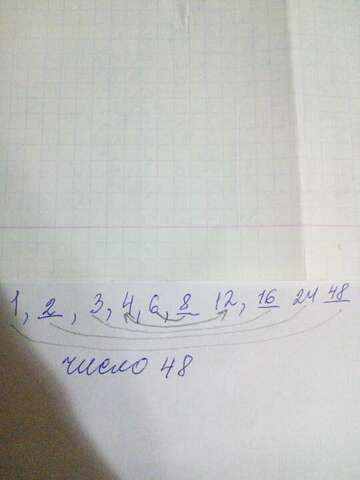 1, 2, 3, 4, 6, 8 12, 16 24 48
число 48